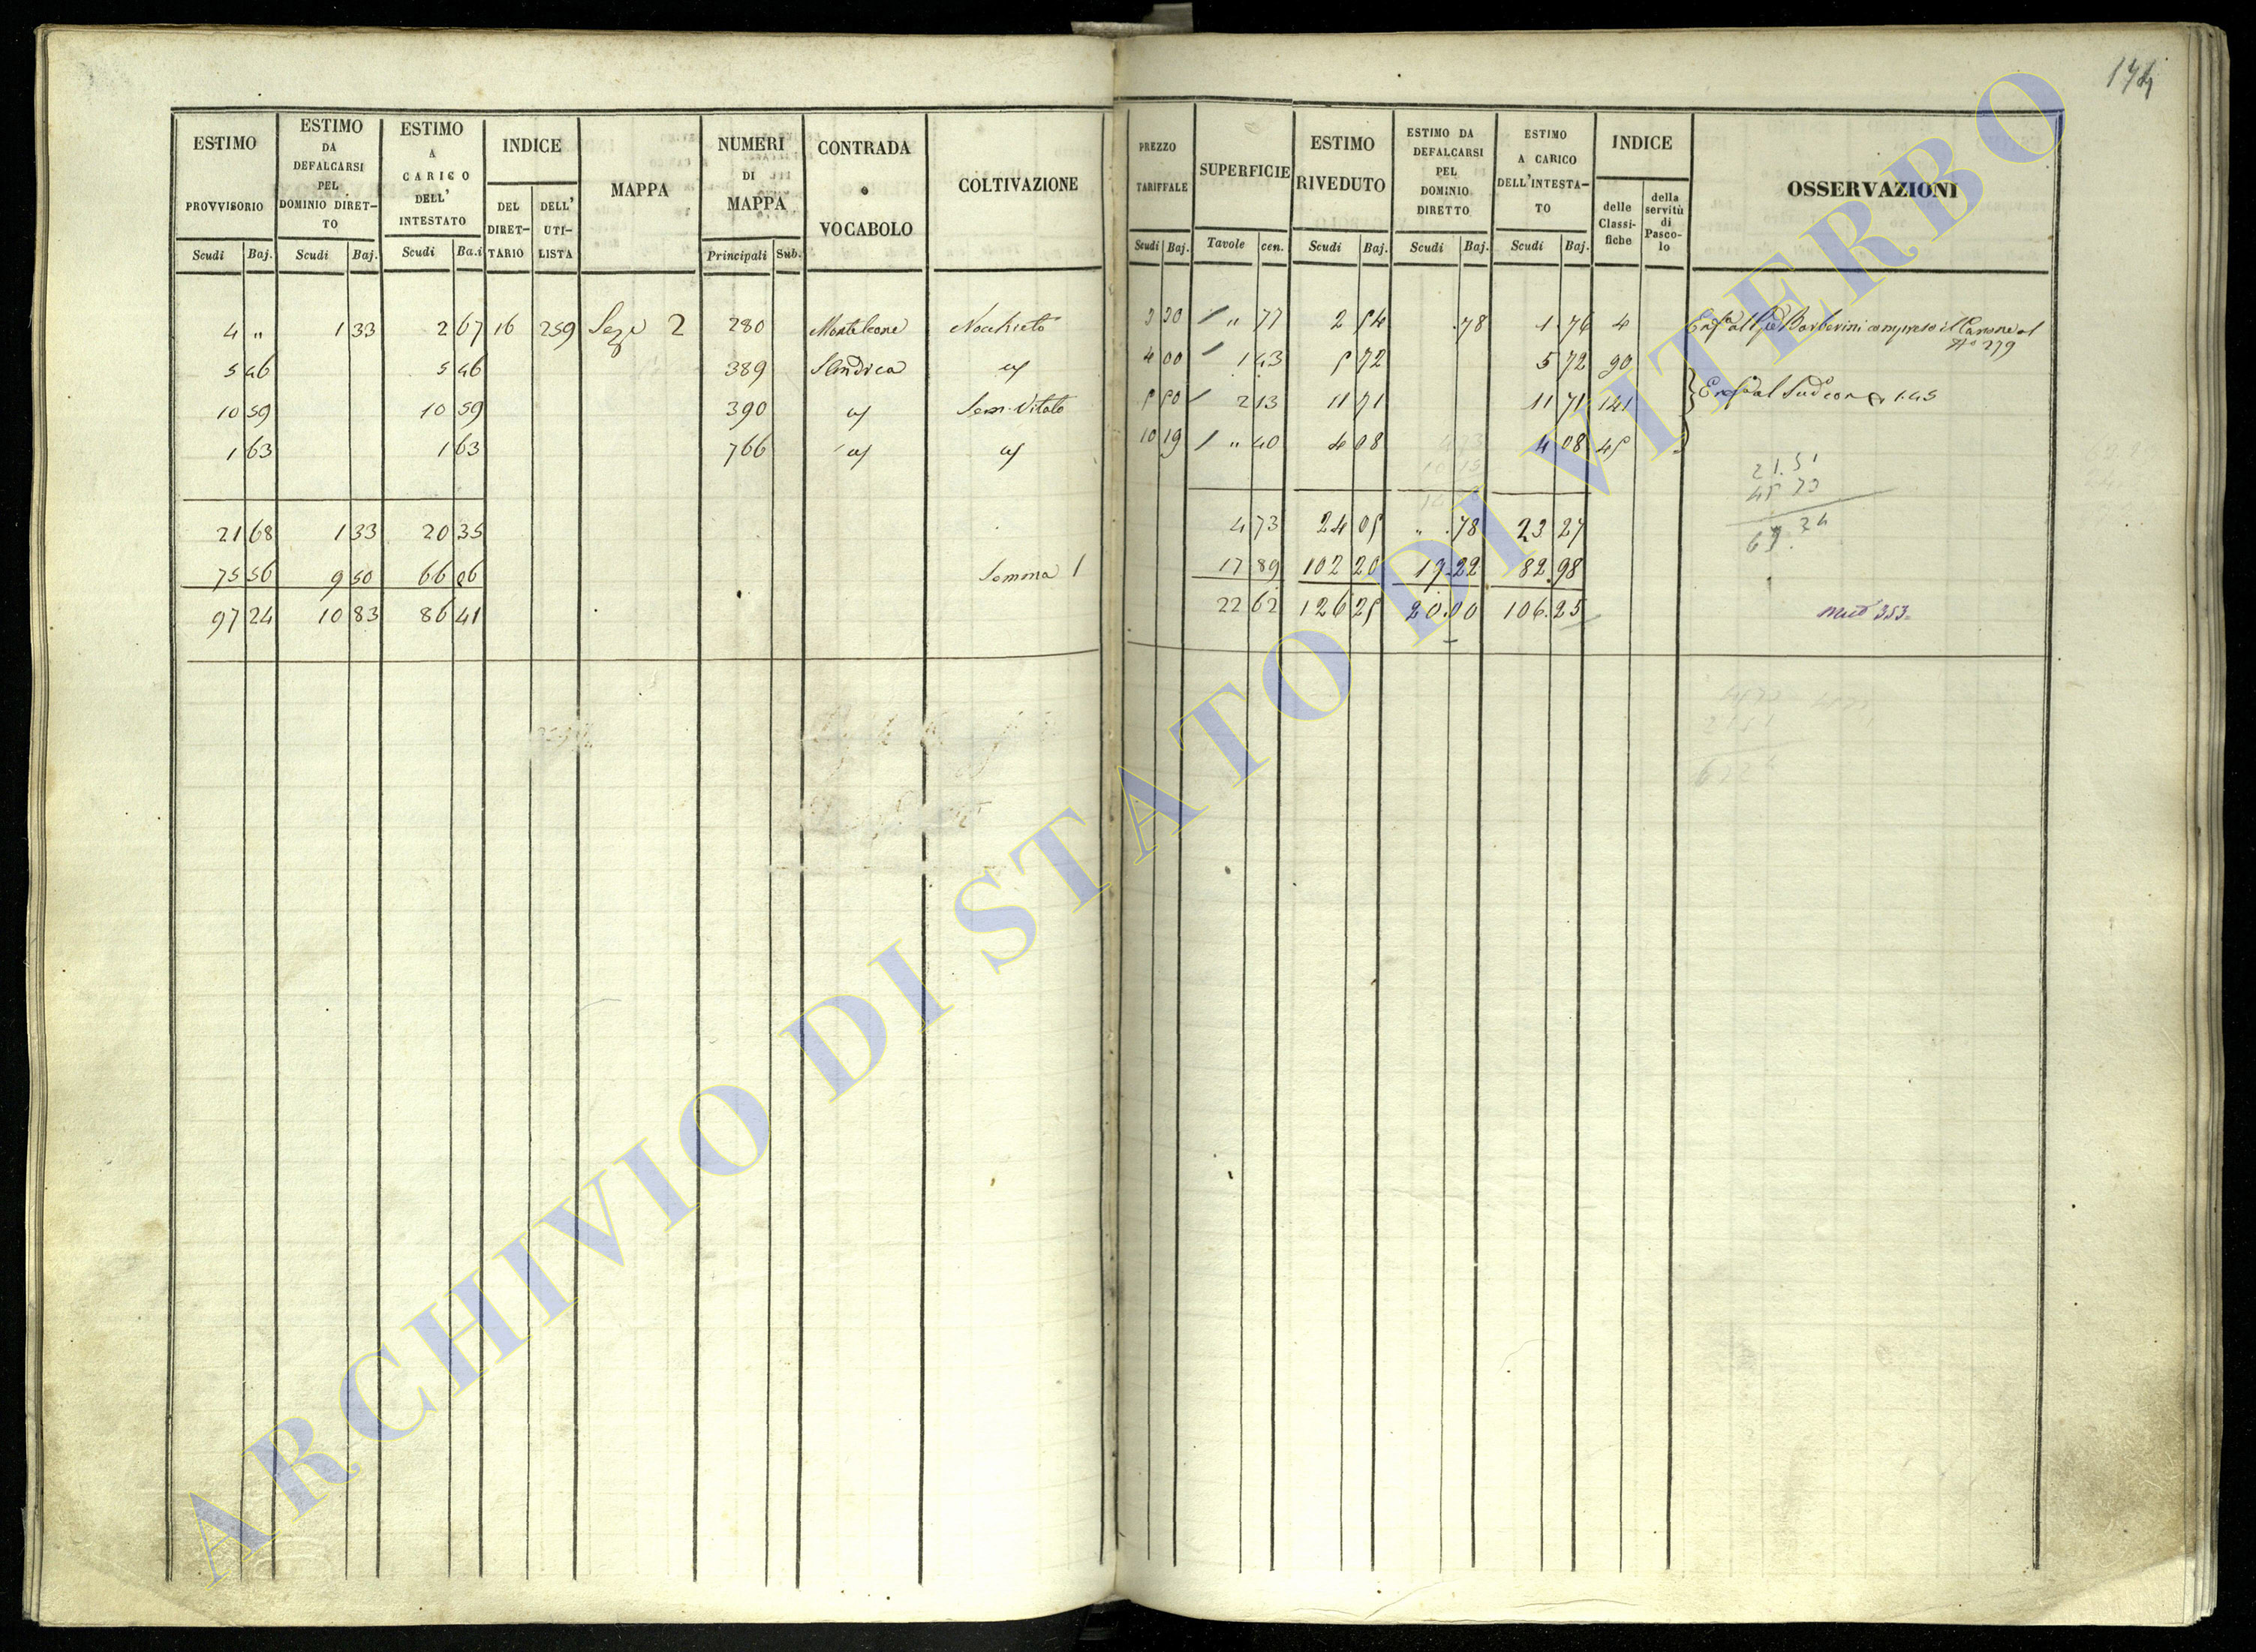 174
ESTIMO PROVVISORIO | ESTIMO DA DEFALCARSI PEL DOMINIO DIRET-TO | ESTIMO A CARICO DELL' INTESTATO | INDICE | MAPPA | NUMERI DI MAPPA | CONTRADA o VOCABOLO | COLTIVAZIONE | PREZZO TARIFFALE | SUPERFICIE | ESTIMO RIVEDUTO | ESTIMO DA DEFALCARSI PEL DOMINIO DIRETTO | ESTIMO A CARICO DELL'INTESTA-TO | INDICE | OSSERVAZIONI
Scudi | Baj. | Scudi | Baj. | Scudi | Ba.i | DEL DIRET-TARIO | DELL' UTI-LISTA | Principali | Sub. | Scudi | Baj. | Tavole | cen. | Scudi | Baj. | Scudi | Baj. | Scudi | Baj. | delle Classi-fiche | della servitù di Pasco-lo
4 " | 1 33 | 2 67 | 16 | 259 | Seze 2 | 280 | Monteleone | Nocchieto | 3 30 | " 77 | 2 54 | .78 | 1.76 | 4 | Barberini compreso il Canone al No 279
5 46 | 5 46 | 389 | S Andrea | 4 00 | 1 43 | 5 72 | 5 72 | 90
10 59 | 10 59 | 390 | Sem. Vitato | 5 50 | 2 13 | 11 71 | 11 71 | 141 | 1.45
1 63 | 1 63 | 766 | 10 19 | " 40 | 4 08 | 4 08 | 45
21.51
45 73
67.24
21 68 | 1 33 | 20 35 | 4 73 | 24 05 | " .78 | 23 27
75 56 | 9 50 | 66 06 | Somma | 17 89 | 102 20 | 19.22 | 82.98
97 24 | 10 83 | 86 41 | 22 62 | 126 25 | 20.00 | 106.25 | 353
ARCHIVIO DI STATO DI VITERBO